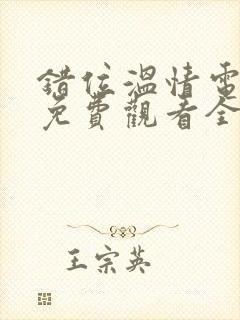 錯位溫情電
免費觀看全
王宗英